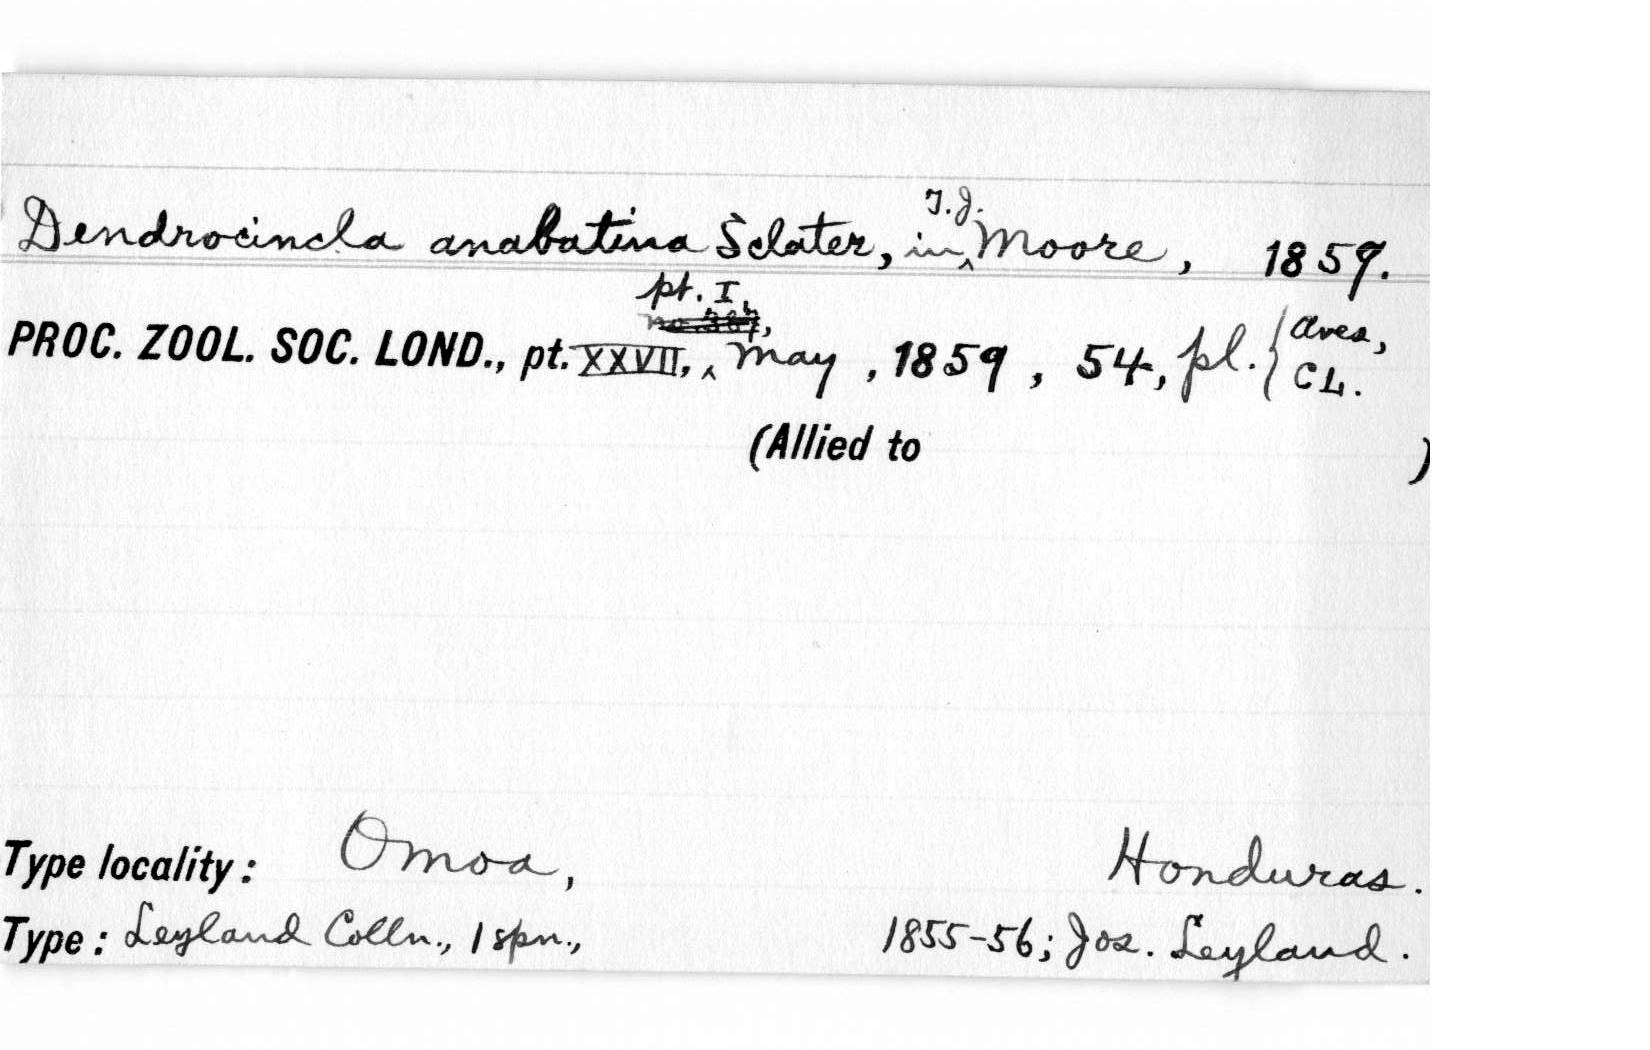 Dendrocincla anabatina Sclater, in ^ T.J. Moore, 1859.
pt. I,
no. 387,
PROC. ZOOL. SOC. LOND., pt. XXVII, ^ May, 1859, 54, pl. { Aves,
CL.
(Allied to )
Type locality: Omoa, Honduras.
Type: Leyland Colln., 1 spn., 1855-56; Jos. Leyland.